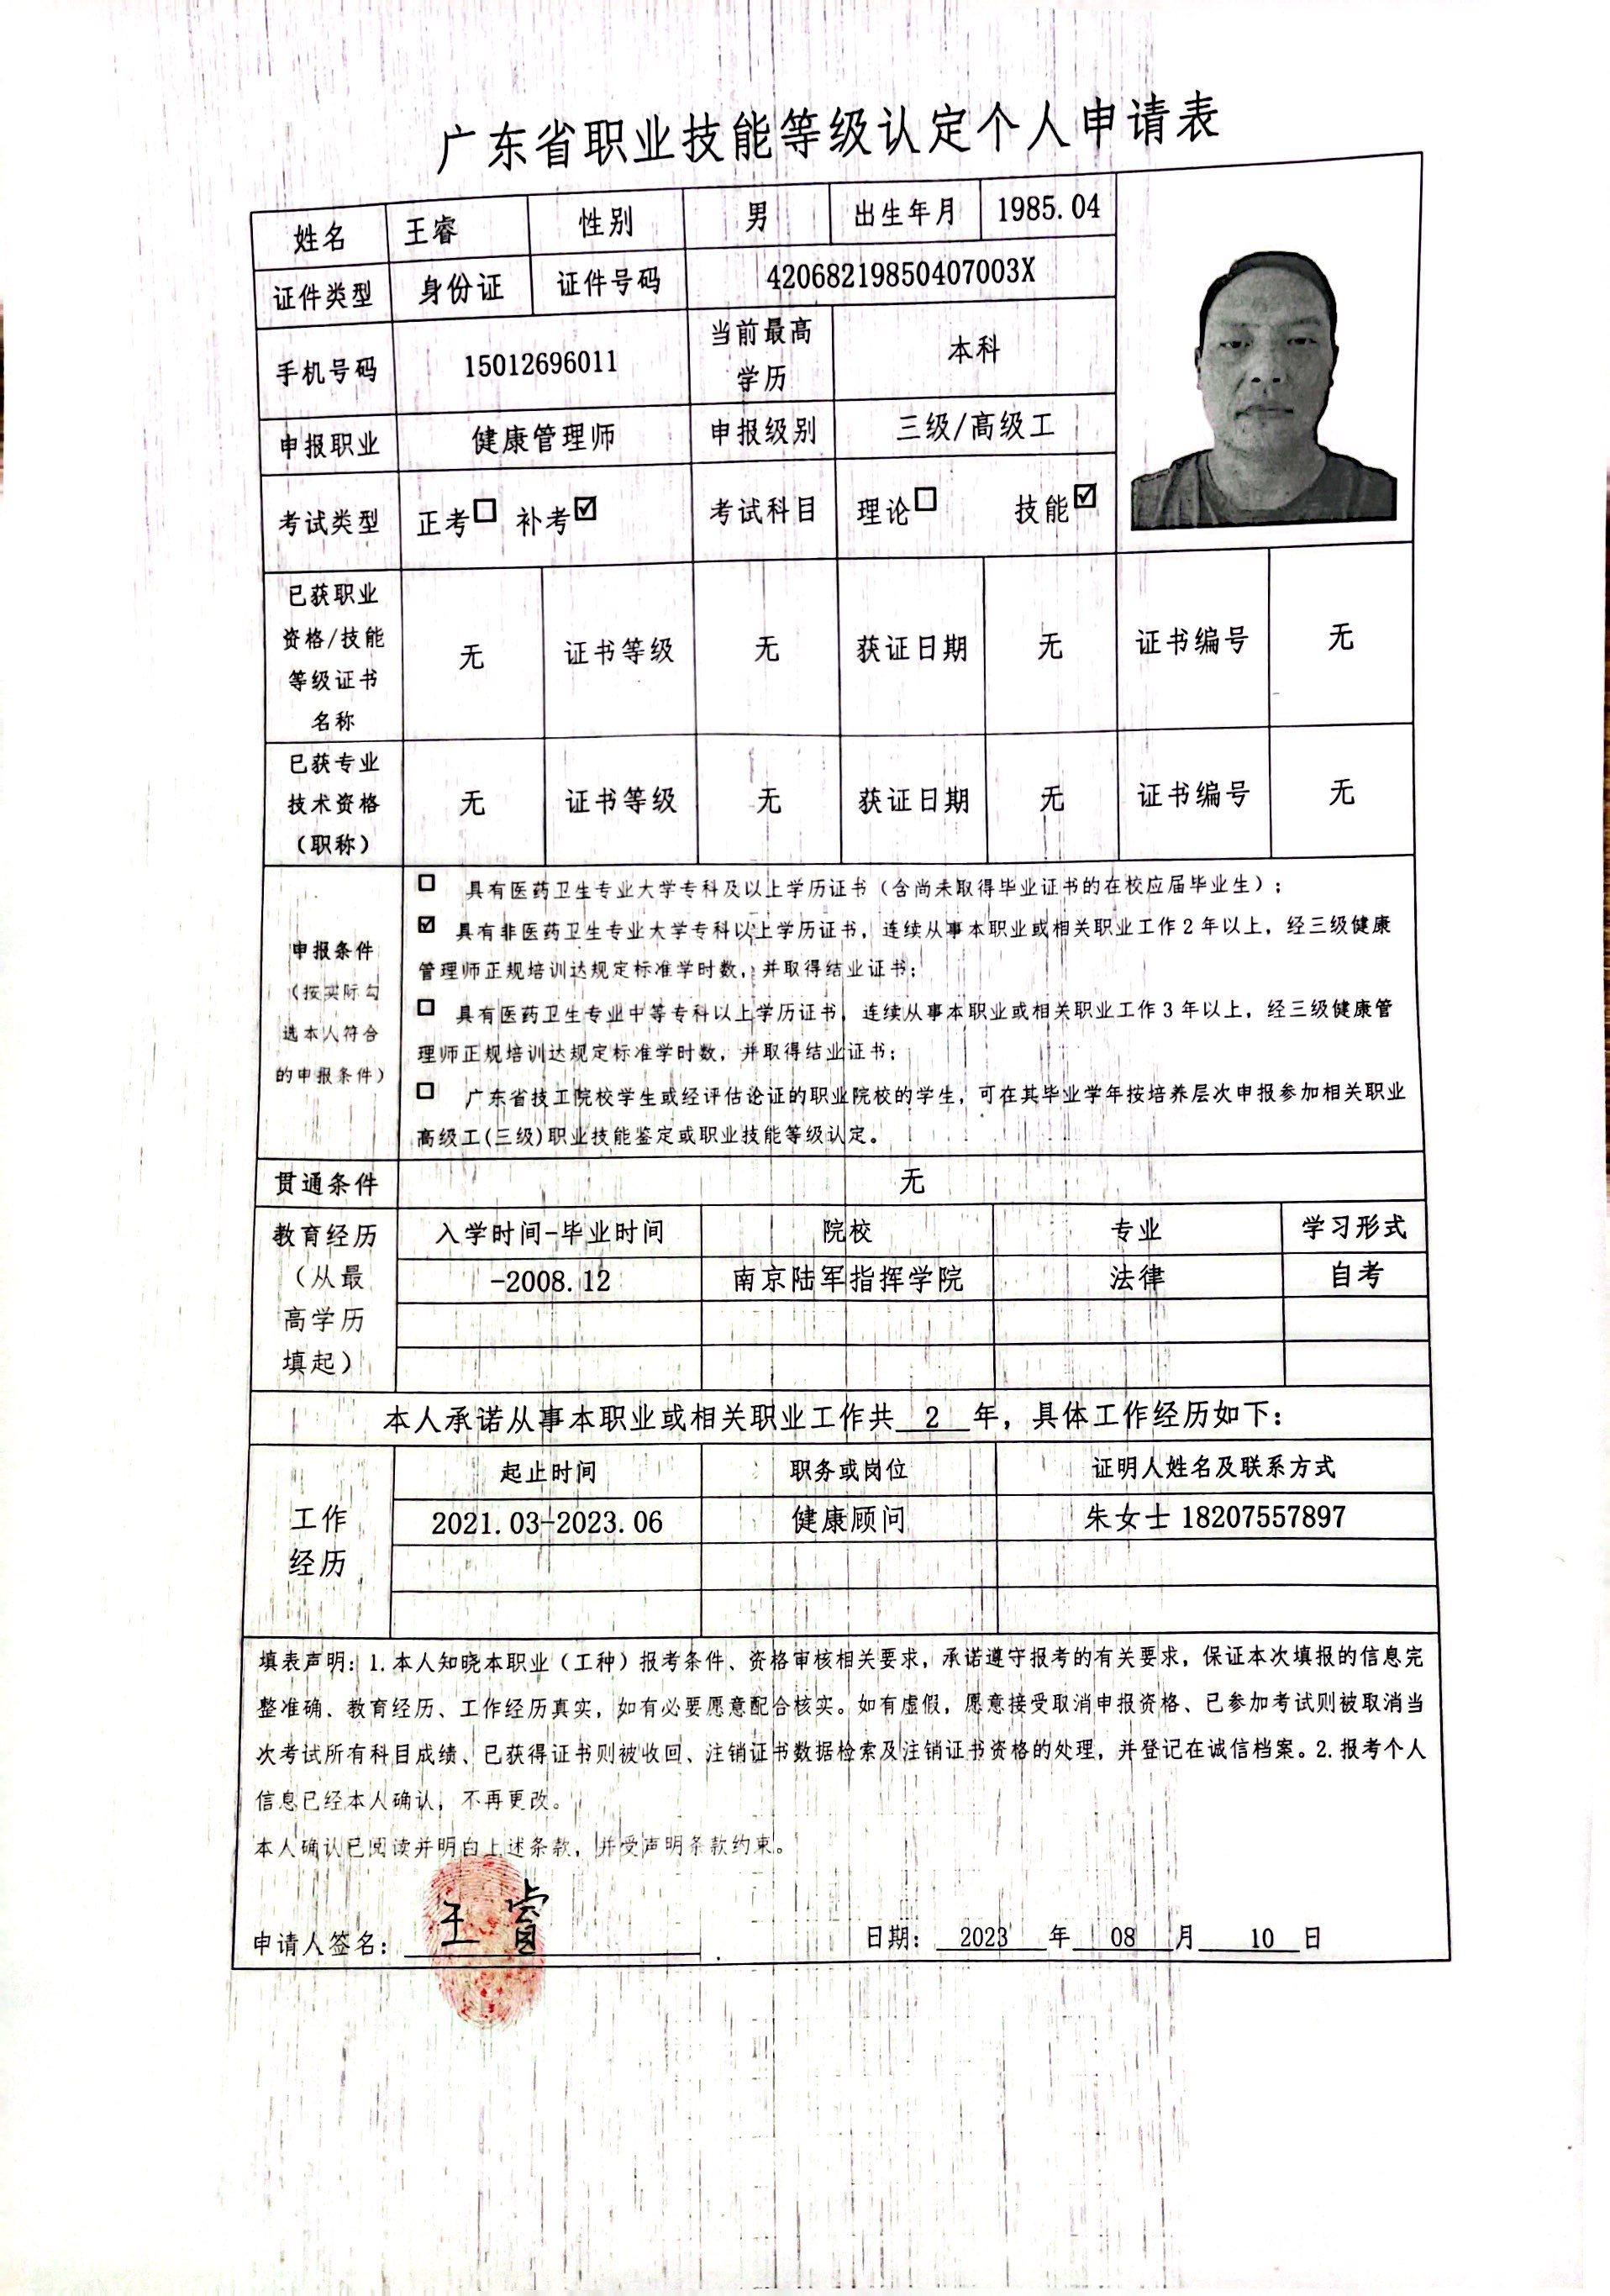 广东省职业技能等级认定个人申请表
姓名 王睿 性别 男 出生年月 1985.04
证件类型 身份证 证件号码 42068219850407003X
手机号码 15012696011 当前最高学历 本科
申报职业 健康管理师 申报级别 三级/高级工
考试类型 正考□ 补考☑ 考试科目 理论□ 技能☑
已获职业
资格/技能
等级证书
名称
无 证书等级 无 获证日期 无 证书编号 无
已获专业
技术资格
（职称）
无 证书等级 无 获证日期 无 证书编号 无
申报条件
（按实际勾
选本人符合
的申报条件）
□ 具有医药卫生专业大学专科及以上学历证书（含尚未取得毕业证书的在校应届毕业生）；
☑ 具有非医药卫生专业大学专科以上学历证书，连续从事本职业或相关职业工作2年以上，经三级健康
管理师正规培训达规定标准学时数，并取得结业证书；
□ 具有医药卫生专业中等专科以上学历证书，连续从事本职业或相关职业工作3年以上，经三级健康管
理师正规培训达规定标准学时数，并取得结业证书；
□ 广东省技工院校学生或经评估论证的职业院校的学生，可在其毕业学年按培养层次申报参加相关职业
高级工(三级)职业技能鉴定或职业技能等级认定。
贯通条件 无
教育经历
（从最
高学历
填起）
入学时间-毕业时间 院校 专业 学习形式
-2008.12 南京陆军指挥学院 法律 自考
本人承诺从事本职业或相关职业工作共 2 年，具体工作经历如下：
工作
经历
起止时间 职务或岗位 证明人姓名及联系方式
2021.03-2023.06 健康顾问 朱女士 18207557897
填表声明：1.本人知晓本职业（工种）报考条件、资格审核相关要求，承诺遵守报考的有关要求，保证本次填报的信息完
整准确、教育经历、工作经历真实，如有必要愿意配合核实。如有虚假，愿意接受取消申报资格、已参加考试则被取消当
次考试所有科目成绩、已获得证书则被收回、注销证书数据检索及注销证书资格的处理，并登记在诚信档案。2.报考个人
信息已经本人确认，不再更改。
本人确认已阅读并明白上述条款，并受声明条款约束。
申请人签名：王睿 日期：2023 年 08 月 10 日